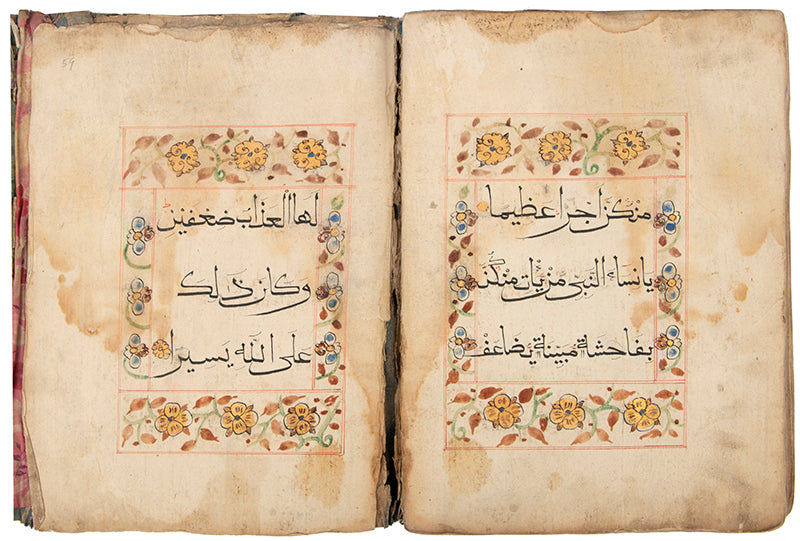 منكن اجرا عظيما
يانساء النبي من يات منكن
بفاحشة مبينة يضاعف
59
لها العذاب ضعفين
وكان ذلك
على الله يسيرا